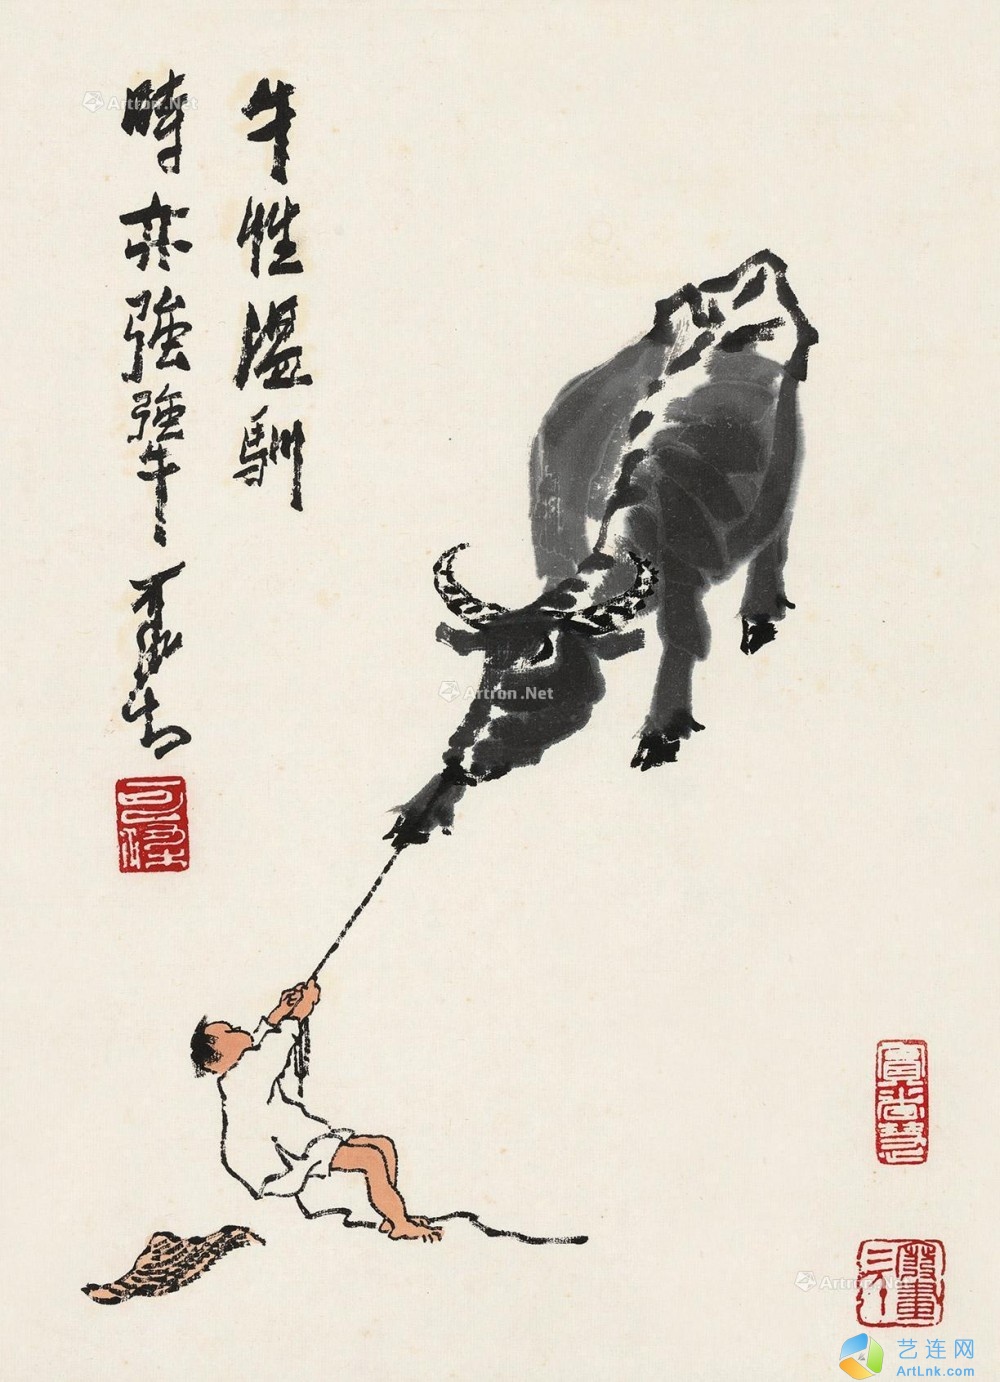 牛性溫馴
時亦強強牛
可染
Artron.Net
Artron.Net
Artron.Net
艺连网
ArtLnk.com